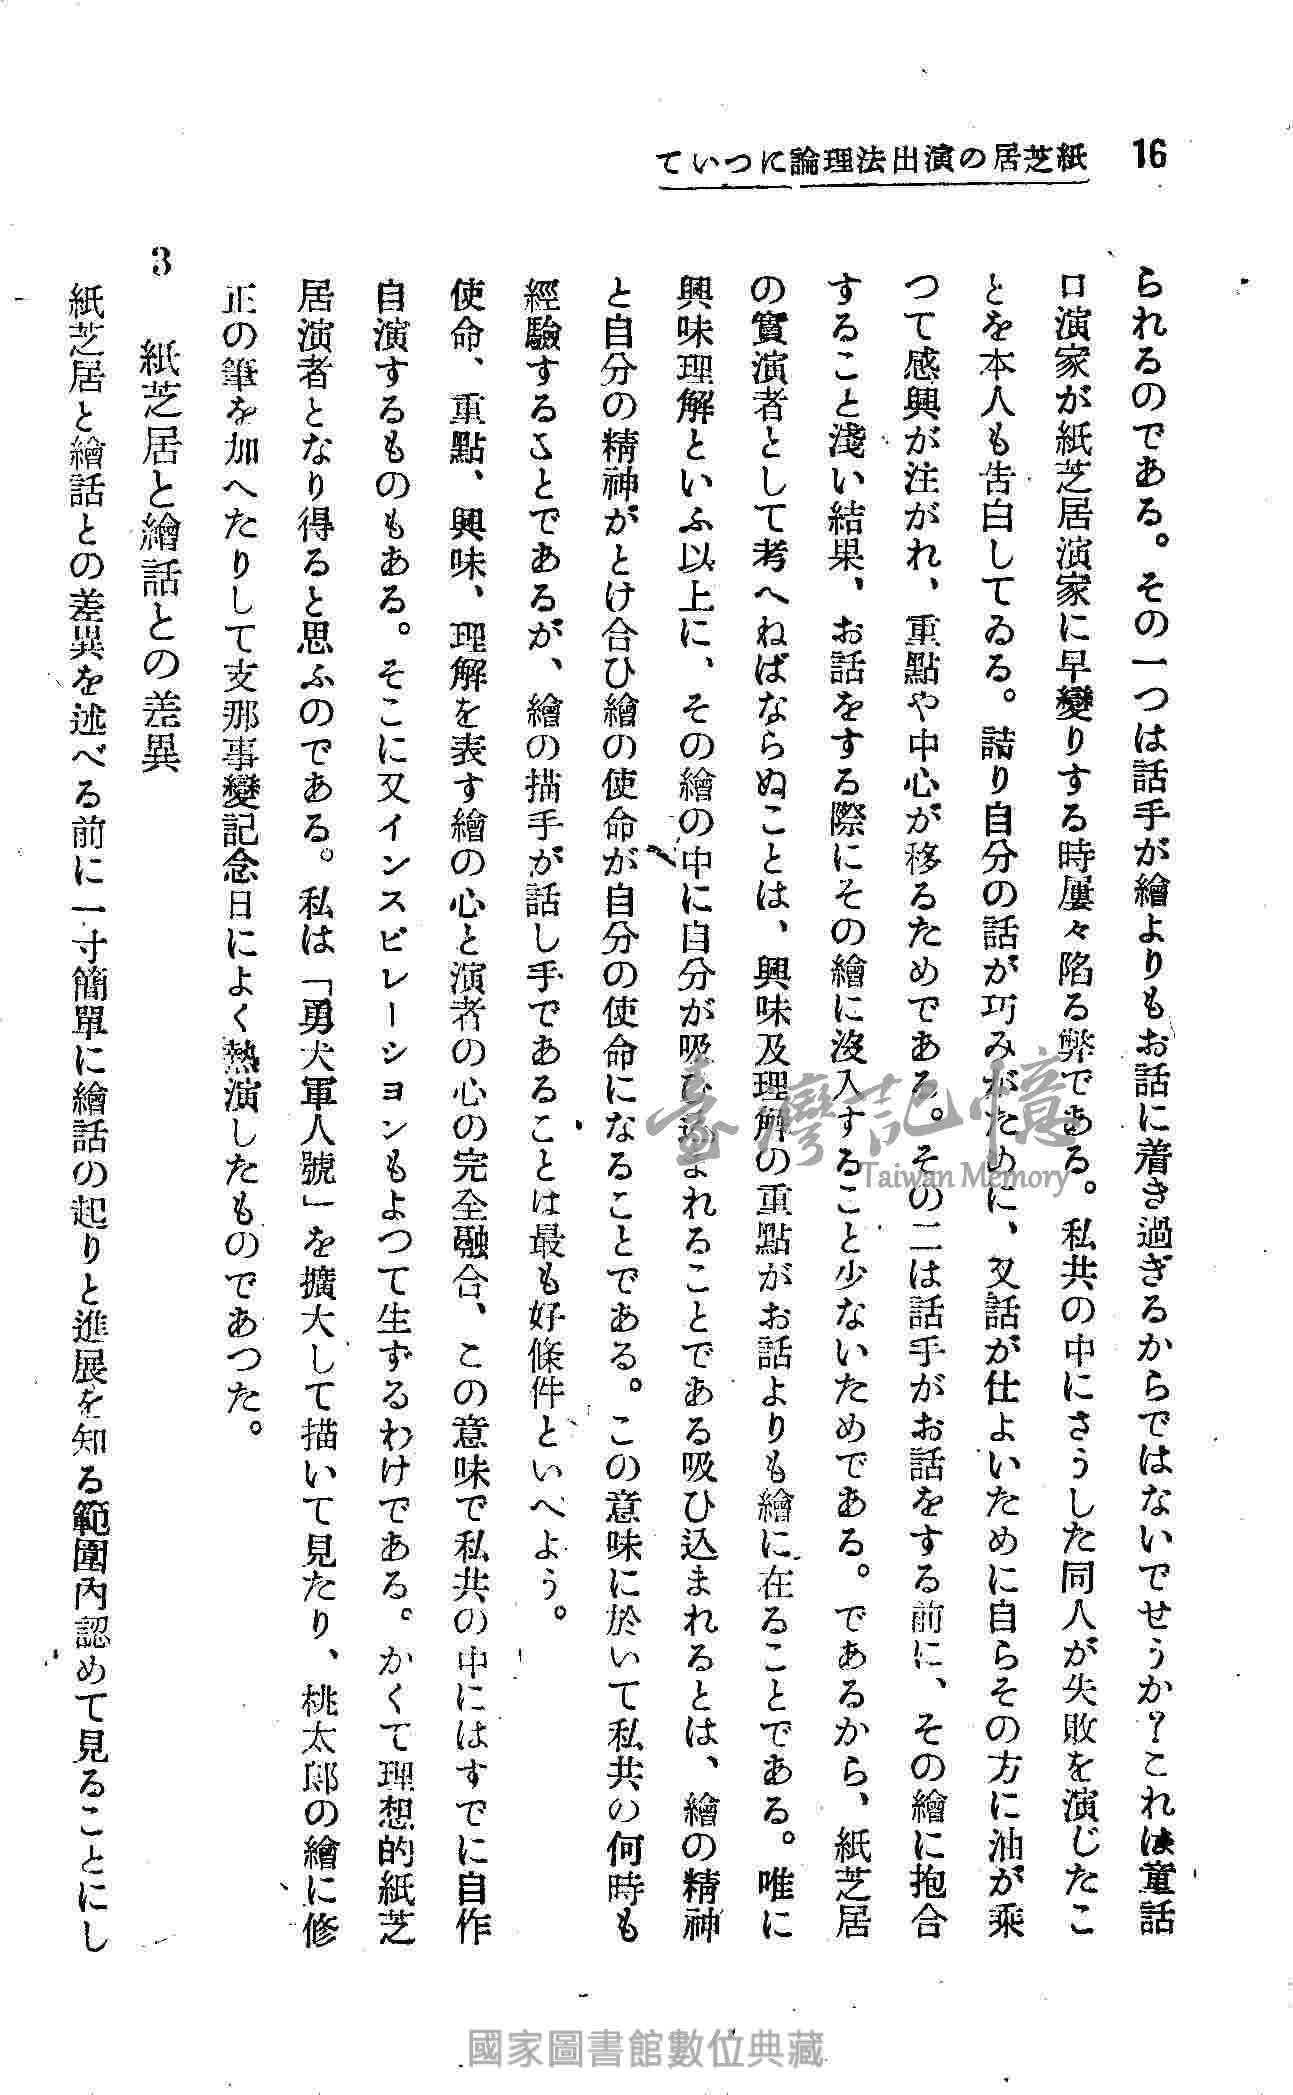 16
紙芝居の演出法理論について
られるのである。その一つは話手が繪よりもお話に着き過ぎるからではないでせうか？これは童話
口演家が紙芝居演家に早變りする時屢々陷る弊である。私共の中にさうした同人が失敗を演じたこ
とを本人も吿白してゐる。詰り自分の話が巧みがために、又話が仕よいために自らその方に油が乘
つて感興が注がれ、重點や中心が移るためである。その二は話手がお話をする前に、その繪に抱合
すること淺い結果、お話をする際にその繪に沒入すること少ないためである。であるから、紙芝居
の實演者として考へねばならぬことは、興味及理解の重點がお話よりも繪に在ることである。唯に
興味理解といふ以上に、その繪の中に自分が吸ひ込まれることである吸ひ込まれるとは、繪の精神
と自分の精神がとけ合ひ繪の使命が自分の使命になることである。この意味に於いて私共の何時も
經驗することであるが、繪の描手が話し手であることは最も好條件といへよう。
使命、重點、興味、理解を表す繪の心と演者の心の完全融合、この意味で私共の中にはすでに自作
自演するものもある。そこに又インスピレーシヨンもよつて生ずるわけである。かくて理想的紙芝
居演者となり得ると思ふのである。私は「勇犬軍人號」を擴大して描いて見たり、桃太郎の繪に修
正の筆を加へたりして支那事變記念日によく熱演したものであつた。
3　紙芝居と繪話との差異
紙芝居と繪話との差異を述べる前に一寸簡單に繪話の起りと進展を知る範圍內認めて見ることにし
臺灣記憶
Taiwan Memory
國家圖書館數位典藏